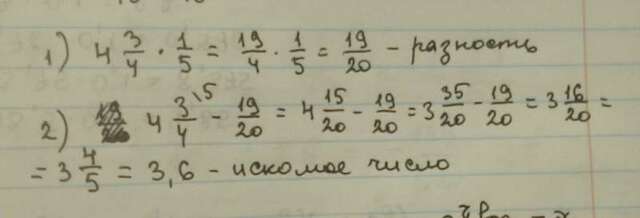 1) 4 3/4 · 1/5 = 19/4 · 1/5 = 19/20 – разность
2) 4 3\5/4 - 19/20 = 4 15/20 - 19/20 = 3 35/20 - 19/20 = 3 16/20 =
= 3 4/5 = 3,6 – искомое число